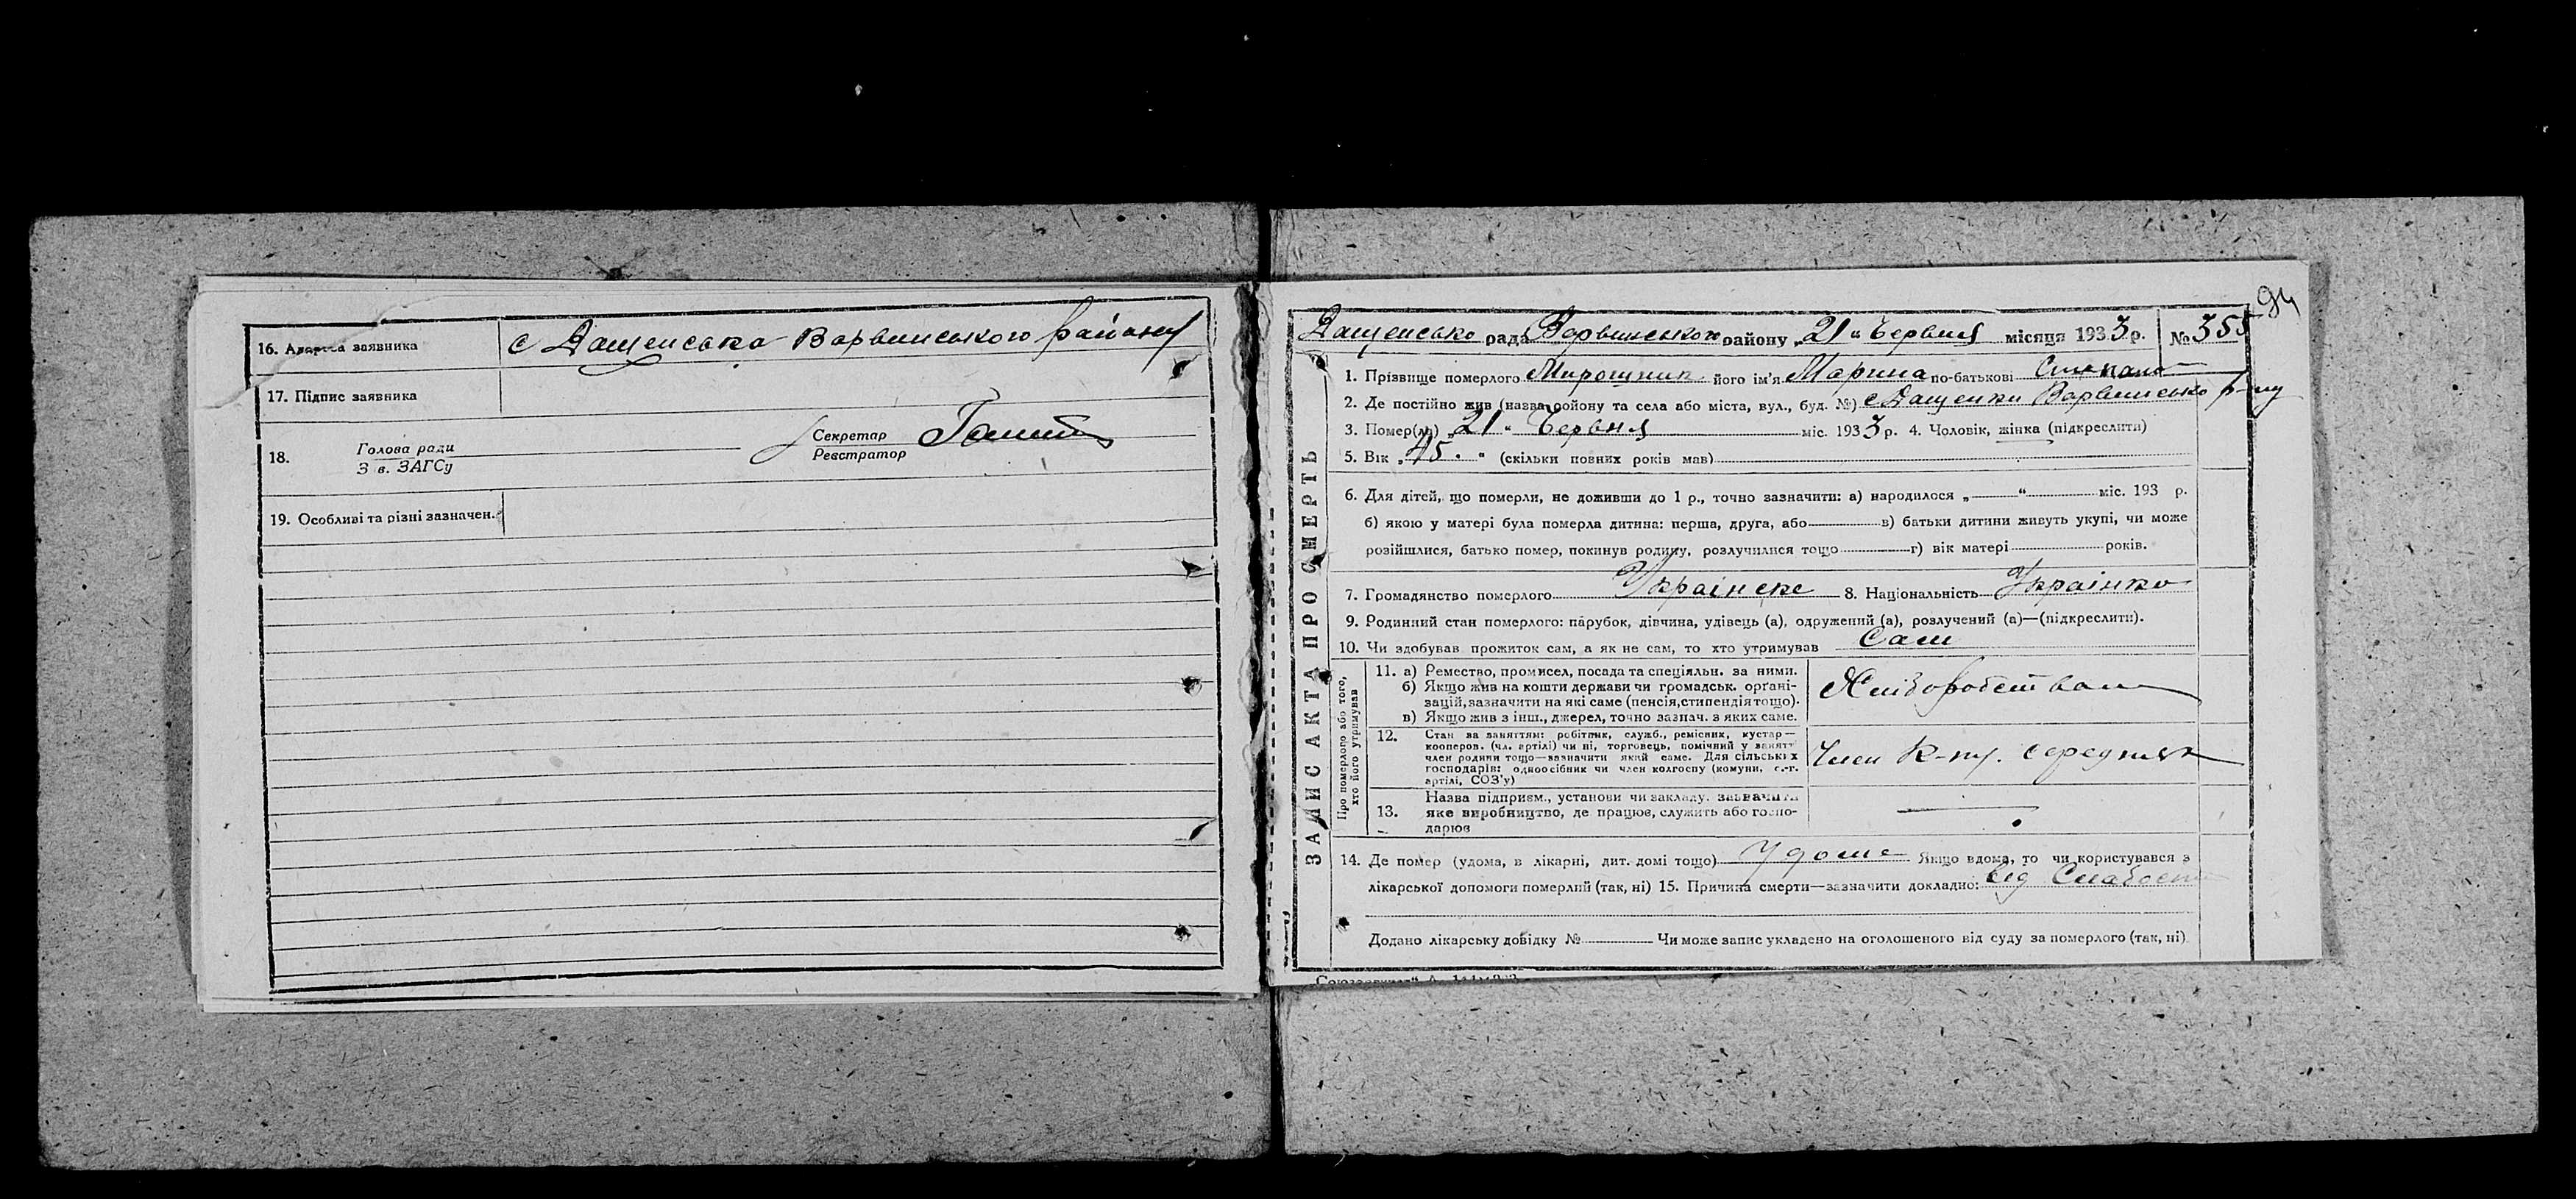 16. Адреса заявника с Дащенська Варвинського району
17. Підпис заявника
18. Голова ради
З в. ЗАГСу
Секретар
Реєстратор
19. Особливі та різні зазначен.
94
Дащенсько рада Варвинського району „21“ Червня місяця 1933 р. № 355
ЗАПИС АКТА ПРО СМЕРТЬ
1. Прізвище померлого Мирошник його ім'я Марина по-батькові
2. Де постійно жив (назва району та села або міста, вул., буд. №) с Дащенки Варвинсько р-ну
3. Помер(ла) „21“ Червня міс. 1933 р. 4. Чоловік, жінка (підкреслити)
5. Вік „45.“ (скільки повних років мав)
6. Для дітей, що померли, не доживши до 1 р., точно зазначити: а) народилося „ “ міс. 193 р.
б) якою у матері була померла дитина: перша, друга, або в) батьки дитини живуть укупі, чи може
розійшлися, батько помер, покинув родину, розлучилися тощо г) вік матері років.
7. Громадянство померлого Українске 8. Національність Українка
9. Родинний стан померлого: парубок, дівчина, удівець (а), одружений (а), розлучений (а)—(підкреслити).
10. Чи здобував прожиток сам, а як не сам, то хто утримував Сам
Про померлого або того,
хто його утримував
11. а) Ремество, промисел, посада та спеціяльн. за ними.
б) Якщо жив на кошти держави чи громадськ. органі-
зацій, зазначити на які саме (пенсія, стипендія тощо).
в) Якщо жив з інш., джерел, точно зазнач. з яких саме.
Хліборобством
12. Стан за заняттям: робітник, служб., ремісник, кустар—
кооперов. (чл. артілі) чи ні, торговець, помічний у занятт
член родини тощо—зазначити який саме. Для сільських
господарів: одноосібник чи член колгоспу (комуни, с.-г.
артілі, СОЗ'у)
Член К-пу. середняк
13. Назва підприєм., установи чи закладу. зазначити
яке виробництво, де працює, служить або госпо-
дарює
14. Де помер (удома, в лікарні, дит. домі тощо) Удоме Якщо вдома, то чи користувався з
лікарської допомоги померлий (так, ні) 15. Причина смерти—зазначити докладно: від Слабост
Додано лікарську довідку № Чи може запис укладено на оголошеного від суду за померлого (так, ні)